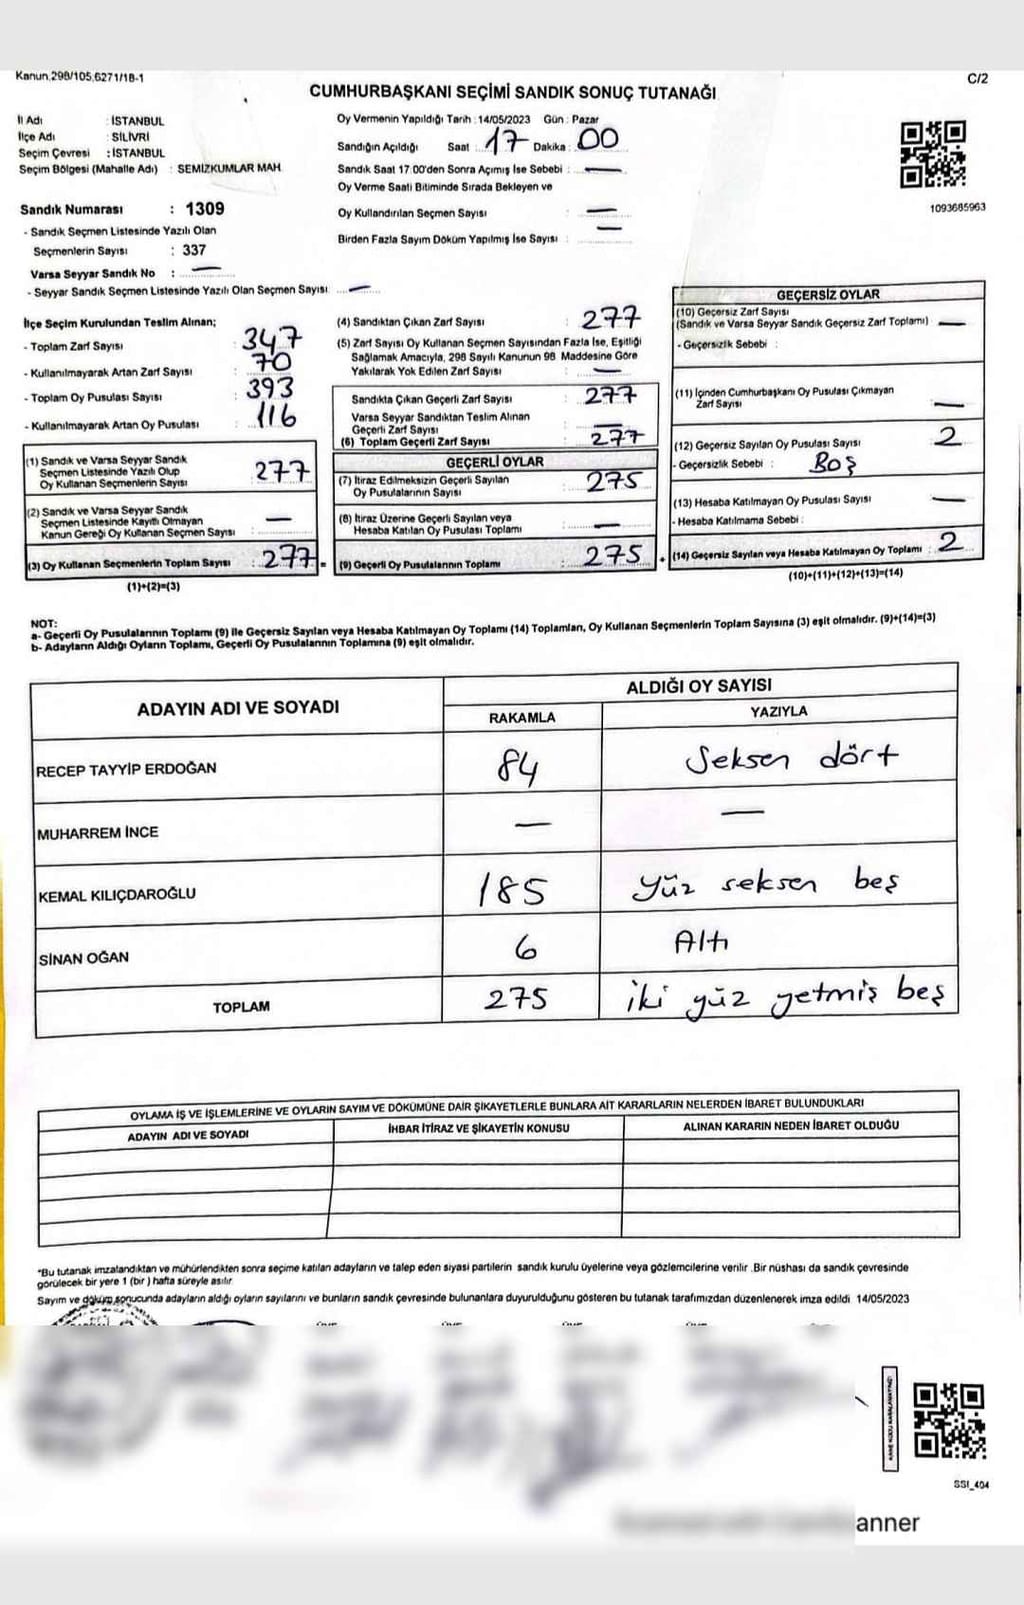 Kanun.298/105,6271/18-1
C/2
CUMHURBAŞKANI SEÇİMİ SANDIK SONUÇ TUTANAĞI
İl Adı : İSTANBUL
İlçe Adı : SİLİVRİ
Seçim Çevresi : İSTANBUL
Seçim Bölgesi (Mahalle Adı) : SEMİZKUMLAR MAH.
Sandık Numarası : 1309
- Sandık Seçmen Listesinde Yazılı Olan
Seçmenlerin Sayısı : 337
Varsa Seyyar Sandık No : —
- Seyyar Sandık Seçmen Listesinde Yazılı Olan Seçmen Sayısı: —
Oy Vermenin Yapıldığı Tarih : 14/05/2023 Gün : Pazar
Sandığın Açıldığı Saat : 17 Dakika : 00
Sandık Saat 17.00'den Sonra Açımış İse Sebebi : —
Oy Verme Saati Bitiminde Sırada Bekleyen ve
Oy Kullandırılan Seçmen Sayısı : —
Birden Fazla Sayım Döküm Yapılmış İse Sayısı : —
1093685963
İlçe Seçim Kurulundan Teslim Alınan;
- Toplam Zarf Sayısı : 347
- Kullanılmayarak Artan Zarf Sayısı : 70
- Toplam Oy Pusulası Sayısı : 393
- Kullanılmayarak Artan Oy Pusulası : 116
(1) Sandık ve Varsa Seyyar Sandık
Seçmen Listesinde Yazılı Olup
Oy Kullanan Seçmenlerin Sayısı : 277
(2) Sandık ve Varsa Seyyar Sandık
Seçmen Listesinde Kayıtlı Olmayan
Kanun Gereği Oy Kullanan Seçmen Sayısı : —
(3) Oy Kullanan Seçmenlerin Toplam Sayısı : 277 =
(1)+(2)=(3)
(4) Sandıktan Çıkan Zarf Sayısı : 277
(5) Zarf Sayısı Oy Kullanan Seçmen Sayısından Fazla İse, Eşitliği
Sağlamak Amacıyla, 298 Sayılı Kanunun 98. Maddesine Göre
Yakılarak Yok Edilen Zarf Sayısı : —
Sandıkta Çıkan Geçerli Zarf Sayısı : 277
Varsa Seyyar Sandıktan Teslim Alınan
Geçerli Zarf Sayısı : —
(6) Toplam Geçerli Zarf Sayısı : 277
GEÇERLİ OYLAR
(7) İtiraz Edilmeksizin Geçerli Sayılan
Oy Pusulalarının Sayısı : 275
(8) İtiraz Üzerine Geçerli Sayılan veya
Hesaba Katılan Oy Pusulası Toplamı : —
(9) Geçerli Oy Pusulalarının Toplamı : 275 +
GEÇERSİZ OYLAR
(10) Geçersiz Zarf Sayısı
(Sandık ve Varsa Seyyar Sandık Geçersiz Zarf Toplamı) —
- Geçersizlik Sebebi :
(11) İçinden Cumhurbaşkanı Oy Pusulası Çıkmayan
Zarf Sayısı —
(12) Geçersiz Sayılan Oy Pusulası Sayısı 2
- Geçersizlik Sebebi : BOŞ
(13) Hesaba Katılmayan Oy Pusulası Sayısı —
- Hesaba Katılmama Sebebi :
(14) Geçersiz Sayılan veya Hesaba Katılmayan Oy Toplamı : 2
(10)+(11)+(12)+(13)=(14)
NOT:
a- Geçerli Oy Pusulalarının Toplamı (9) ile Geçersiz Sayılan veya Hesaba Katılmayan Oy Toplamı (14) Toplamları, Oy Kullanan Seçmenlerin Toplam Sayısına (3) eşit olmalıdır. (9)+(14)=(3)
b- Adayların Aldığı Oyların Toplamı, Geçerli Oy Pusulalarının Toplamına (9) eşit olmalıdır.
ADAYIN ADI VE SOYADI
ALDIĞI OY SAYISI
RAKAMLA YAZIYLA
RECEP TAYYİP ERDOĞAN 84 Seksen dört
MUHARREM İNCE — —
KEMAL KILIÇDAROĞLU 185 Yüz seksen beş
SİNAN OĞAN 6 Altı
TOPLAM 275 iki yüz yetmiş beş
OYLAMA İŞ VE İŞLEMLERİNE VE OYLARIN SAYIM VE DÖKÜMÜNE DAİR ŞİKAYETLERLE BUNLARA AİT KARARLARIN NELERDEN İBARET BULUNDUKLARI
ADAYIN ADI VE SOYADI İHBAR İTİRAZ VE ŞİKAYETİN KONUSU ALINAN KARARIN NEDEN İBARET OLDUĞU
*Bu tutanak imzalandıktan ve mühürlendikten sonra seçime katılan adayların ve talep eden siyasi partilerin sandık kurulu üyelerine veya gözlemcilerine verilir .Bir nüshası da sandık çevresinde
görülecek bir yere 1 (bir ) hafta süreyle asılır.
Sayım ve döküm sonucunda adayların aldığı oyların sayılarını ve bunların sandık çevresinde bulunanlara duyurulduğunu gösteren bu tutanak tarafımızdan düzenlenerek imza edildi 14/05/2023
SSI_404
anner